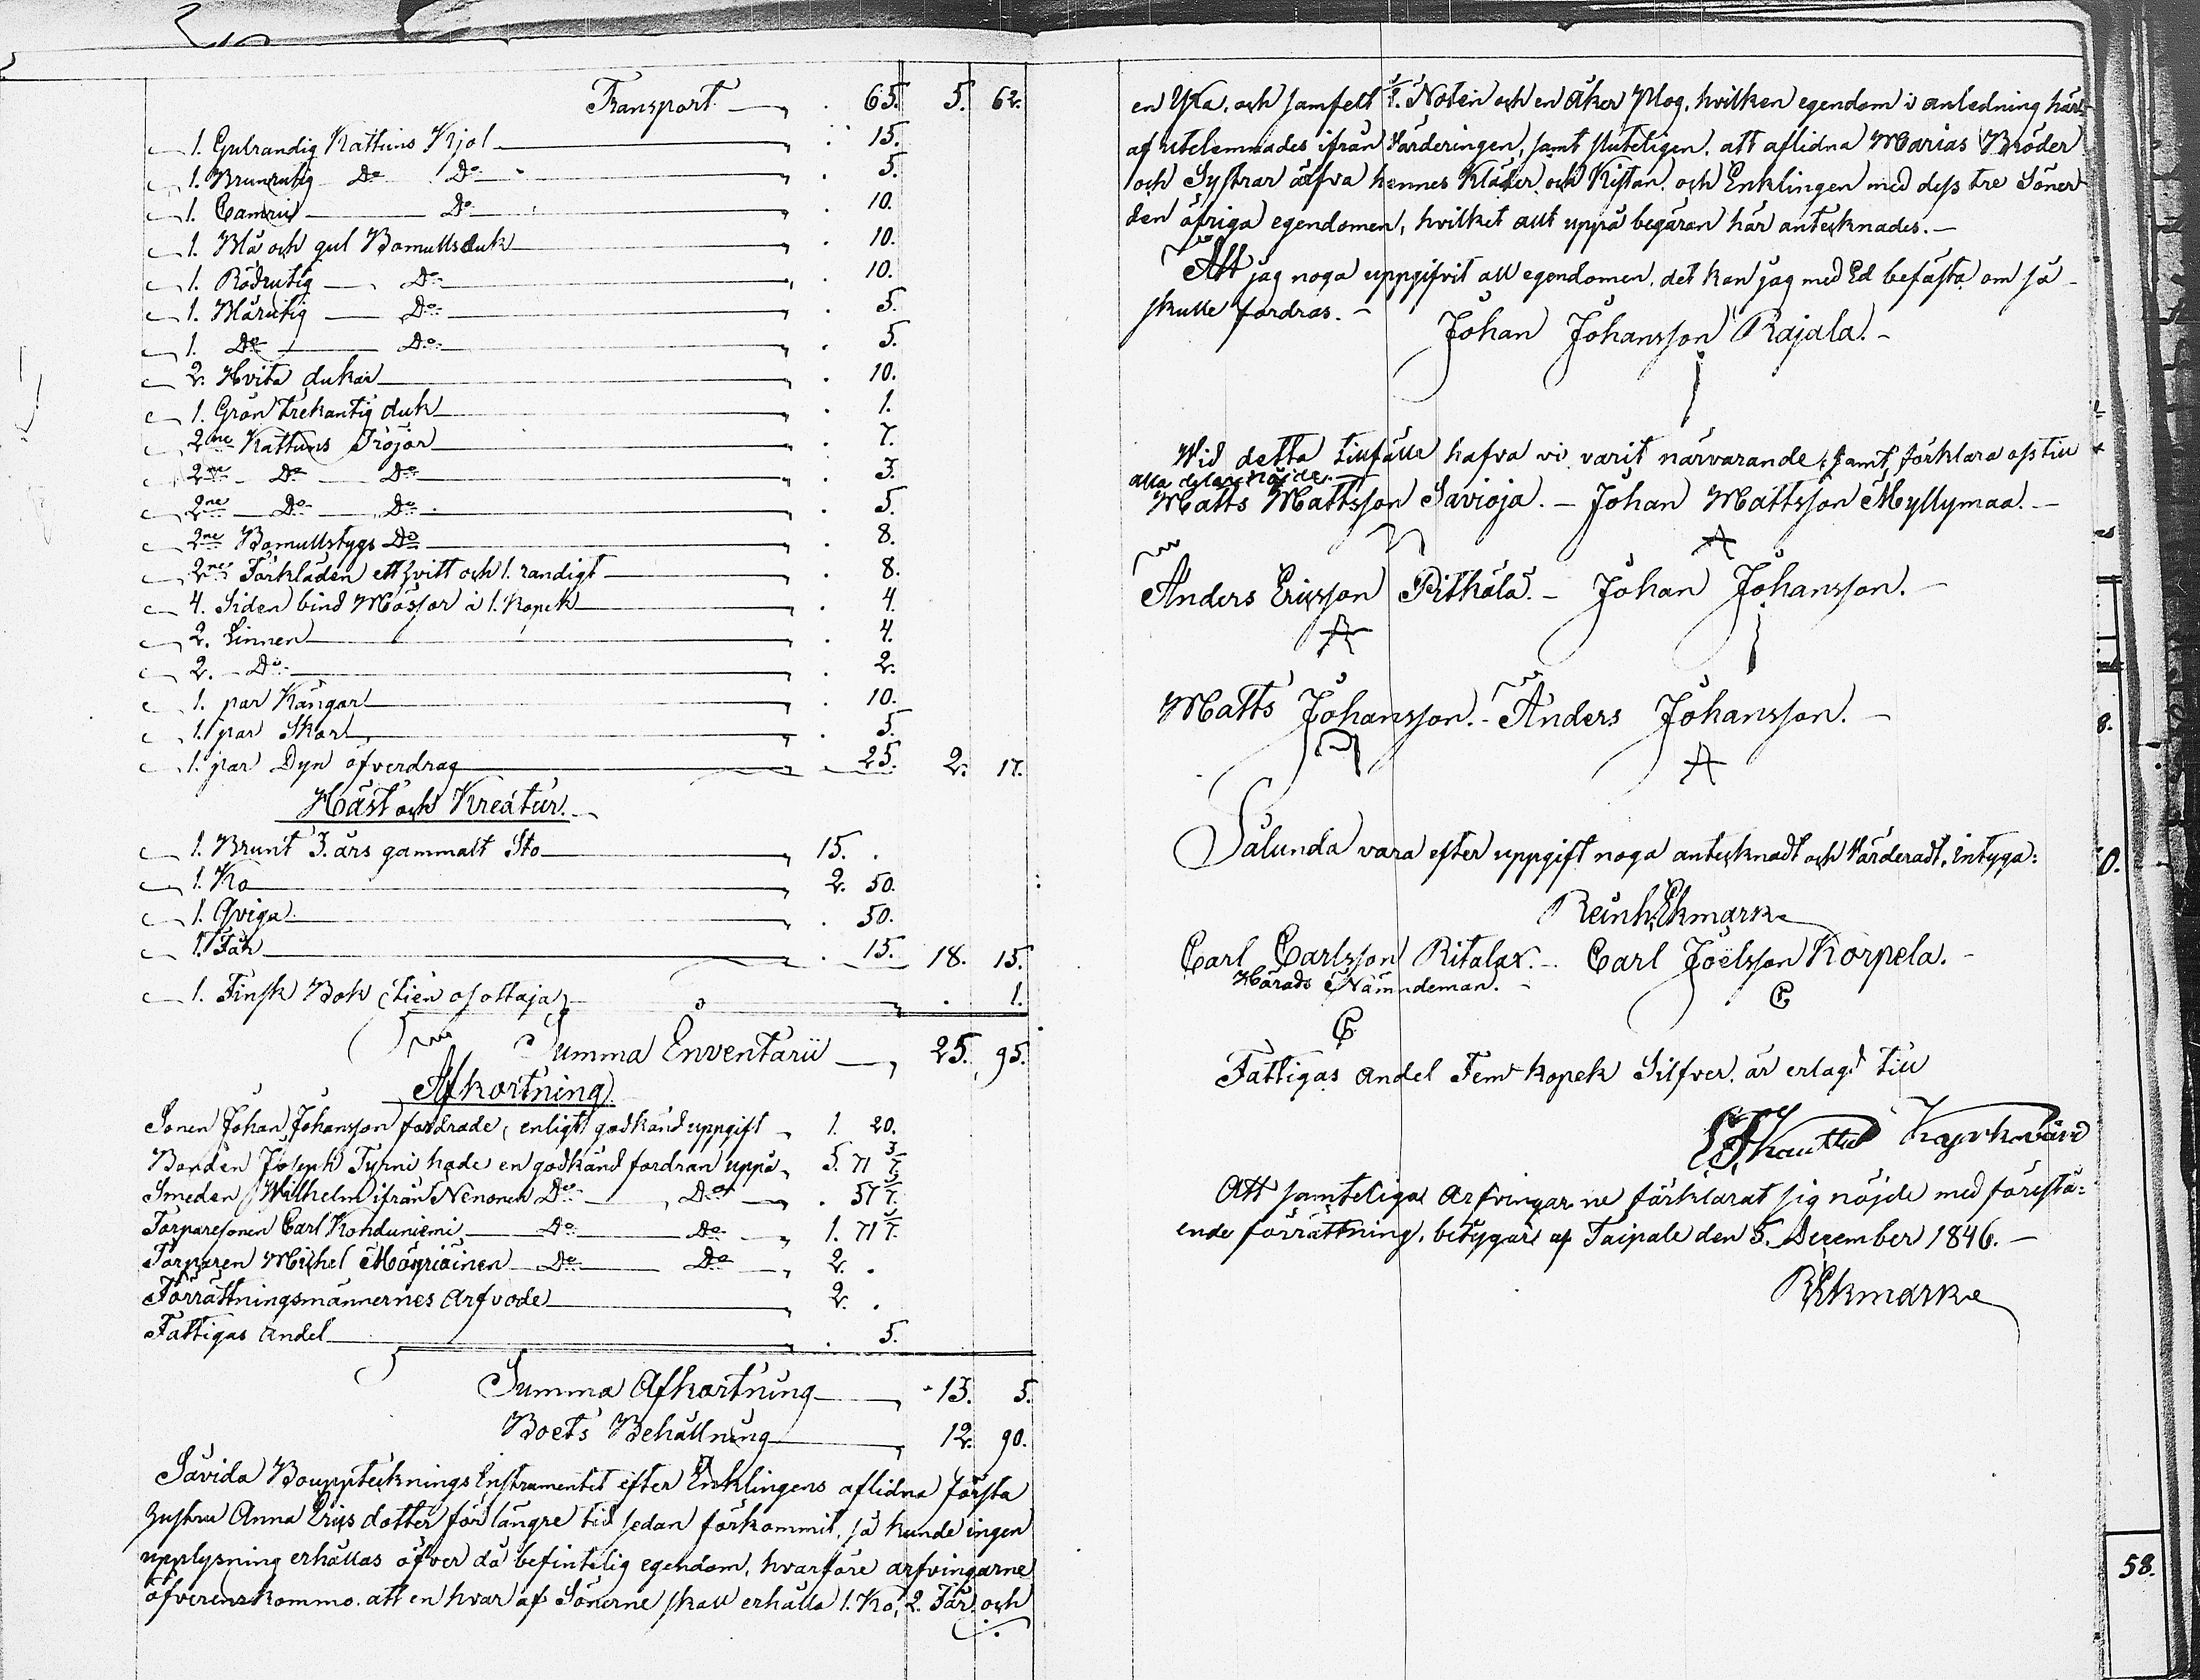 Transport 65. 5. 62.
1. Gulrandig Kattuns Kjol 15.
1. Brunrutig Do Do 5.
1. Camrii Do 10.
1. Blå och gul Bomullsduk 10.
1. Rödrutig Do 10.
1. Blårutig Do 5.
1. Do Do 5.
2. Hvita dukar 10.
1. Grön trekantig duk 1.
2ne Kattuns Tröjor 7.
2ne Do Do 3.
2ne Do Do 5.
2ne Bomullstygs Do 8.
2ne Förkläden ett hvitt och 1. randigt 8.
4. Siden bind Mössor à 1. Kopek 4.
2. Linnen 4.
2. Do 2.
1. par Kängor 10.
1. par Skor 5.
1. par Dyn öfverdrag 25. 2. 17.
Häst och Kreatur.
1. Brunt 3. års gammalt Sto 15. .
1. Ko 2. 50.
1. Qviga 50.
1. Får 15. 18. 15.
1. Finsk Bok (Tien osottaja) 1.
Summa Inventarii 25. 95.
Afkortning
Sonen Johan Johansson fordrade, enligt godkänd uppgift 1. 20.
Bonden Joseph Tyrni hade en godkänd fordran uppå 5. 71 3/7.
Smeden Wilhelm ifrån Nenonen Do Do . 57 1/7.
Torparesonen Carl Kohduniemi Do Do 1. 71 3/7.
Torparen Michel Mäyriäinen Do Do 2. .
Förrättningsmännernes Arfvode 2. .
Fattigas andel 5.
Summa Afkortning 13. 5.
Boets Behållning 12. 90.
Såvida Bouppteknings Instrumentet efter Enklingens aflidna första
hustru Anna Ericsdotter för längre tid sedan förkommit, så kunde ingen
upplysning erhållas öfver då befintelig egendom, hvarföre arfvingarne
öfverenskommo. att en hvar af Sönerne skall erhålla 1. Ko, 2. Får och
en Yxa. och samfelt 1. Noten och en Åker Plog, hvilken egendom i anledning här-
af utelemnades ifrån Värderingen, samt sluteligen. att aflidna Marias Bröder
och Systrar ärfva hennes Kläder och Kistan. och Enklingen med dess tre Söner
den öfriga egendomen, hvilket allt uppå begäran här antecknades.
Att jag noga uppgifvit all egendomen, det kan jag med Ed befästa om så
skulle fordras.
Johan Johansson Rajala.
Wid detta tillfälle hafva vi varit närvarande, samt förklara oss till
alla delar nöjde.
Matts Mattsson Savioja. Johan Mattsson Myllymaa.
Anders Ericsson Pithälä. Johan Johansson.
Matts Johansson. Anders Johansson.
Sålunda vara efter uppgift noga antecknadt och Värderadt, intyga:
Reinh. Ekmark
Carl Carlsson Ritalax. Carl Joëlsson Korpela.
Härads Nämndeman.
Fattigas andel Fem kopek Silfver. är erlagd till
Att samteliga Arfvingarne förklarat sig nöjde med förestå:
ende förrättning. betygar af Taipale den 5. December 1846.
R Ekmark
8.
0.
58.